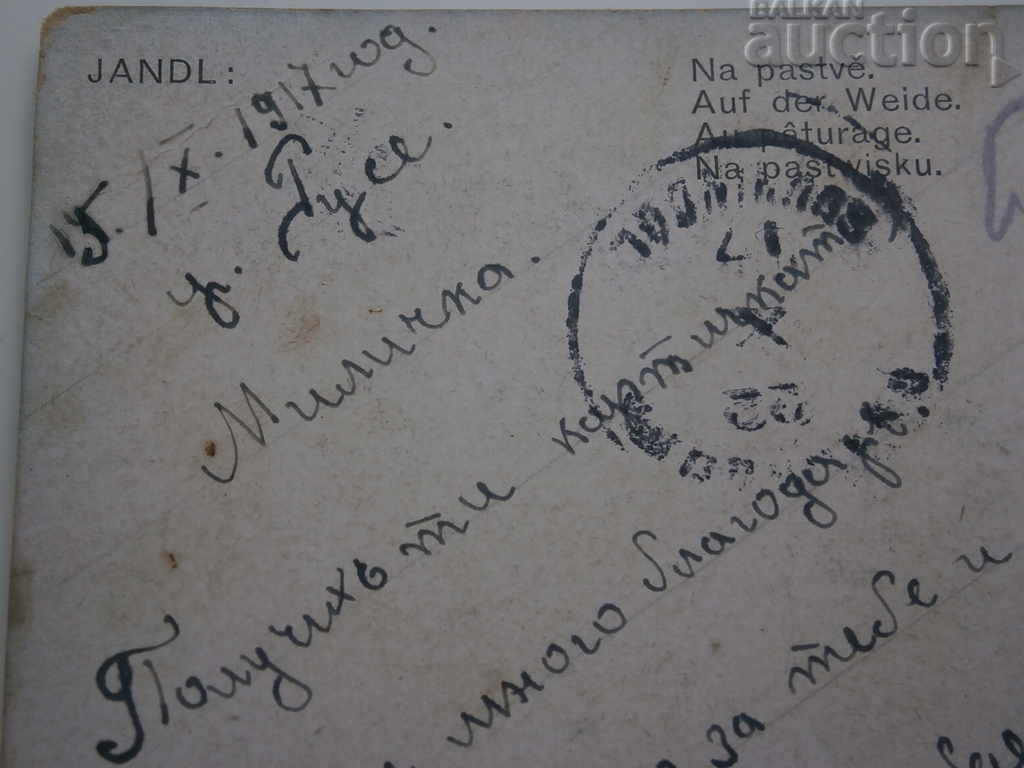 BALKAN
auction
JANDL:
Na pastvě.
Auf der Weide.
Au pâturage.
Na pastwisku.
15. IX. 1917 год.
гр. Русе.
Миличка.
Получихъ ти картичката
много благодаря.
за тебе и